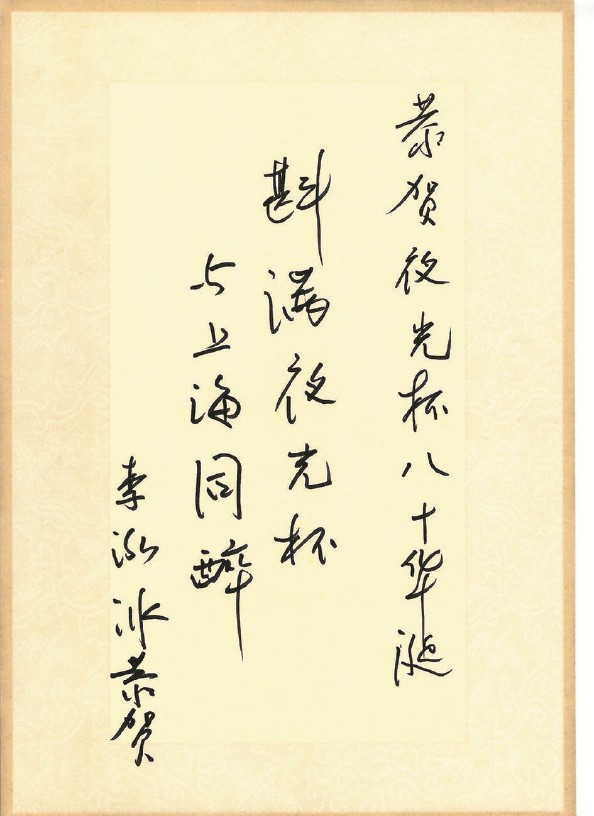 恭贺夜光杯八十华诞
斟满夜光杯
与上海同醉
李泓冰恭贺